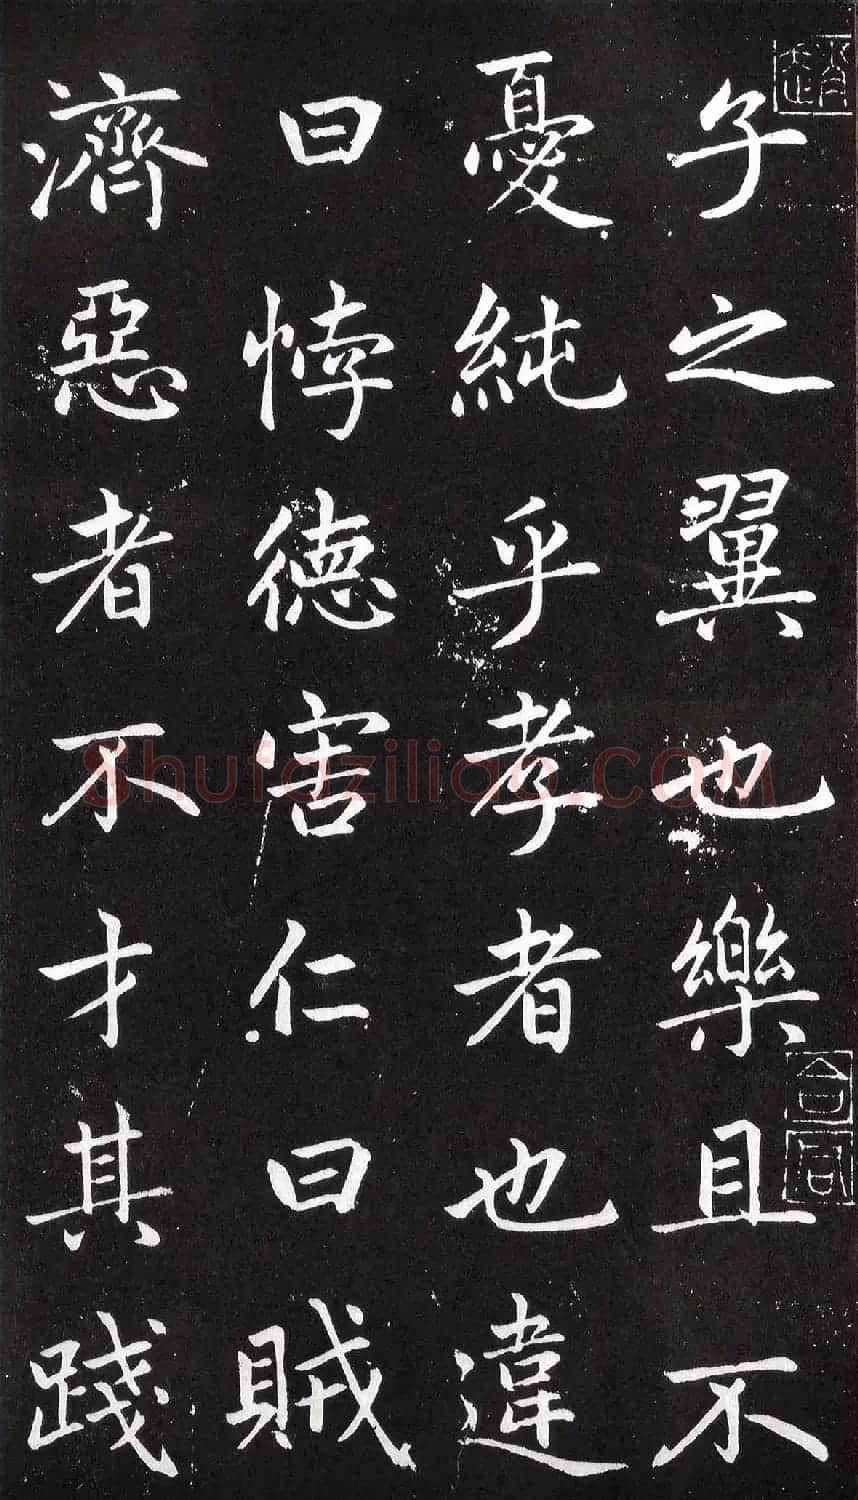 子之翼也樂且不
憂純乎孝者也違
曰悖德害仁曰賊
濟惡者不才其踐
Shufaziliao.COM
合同